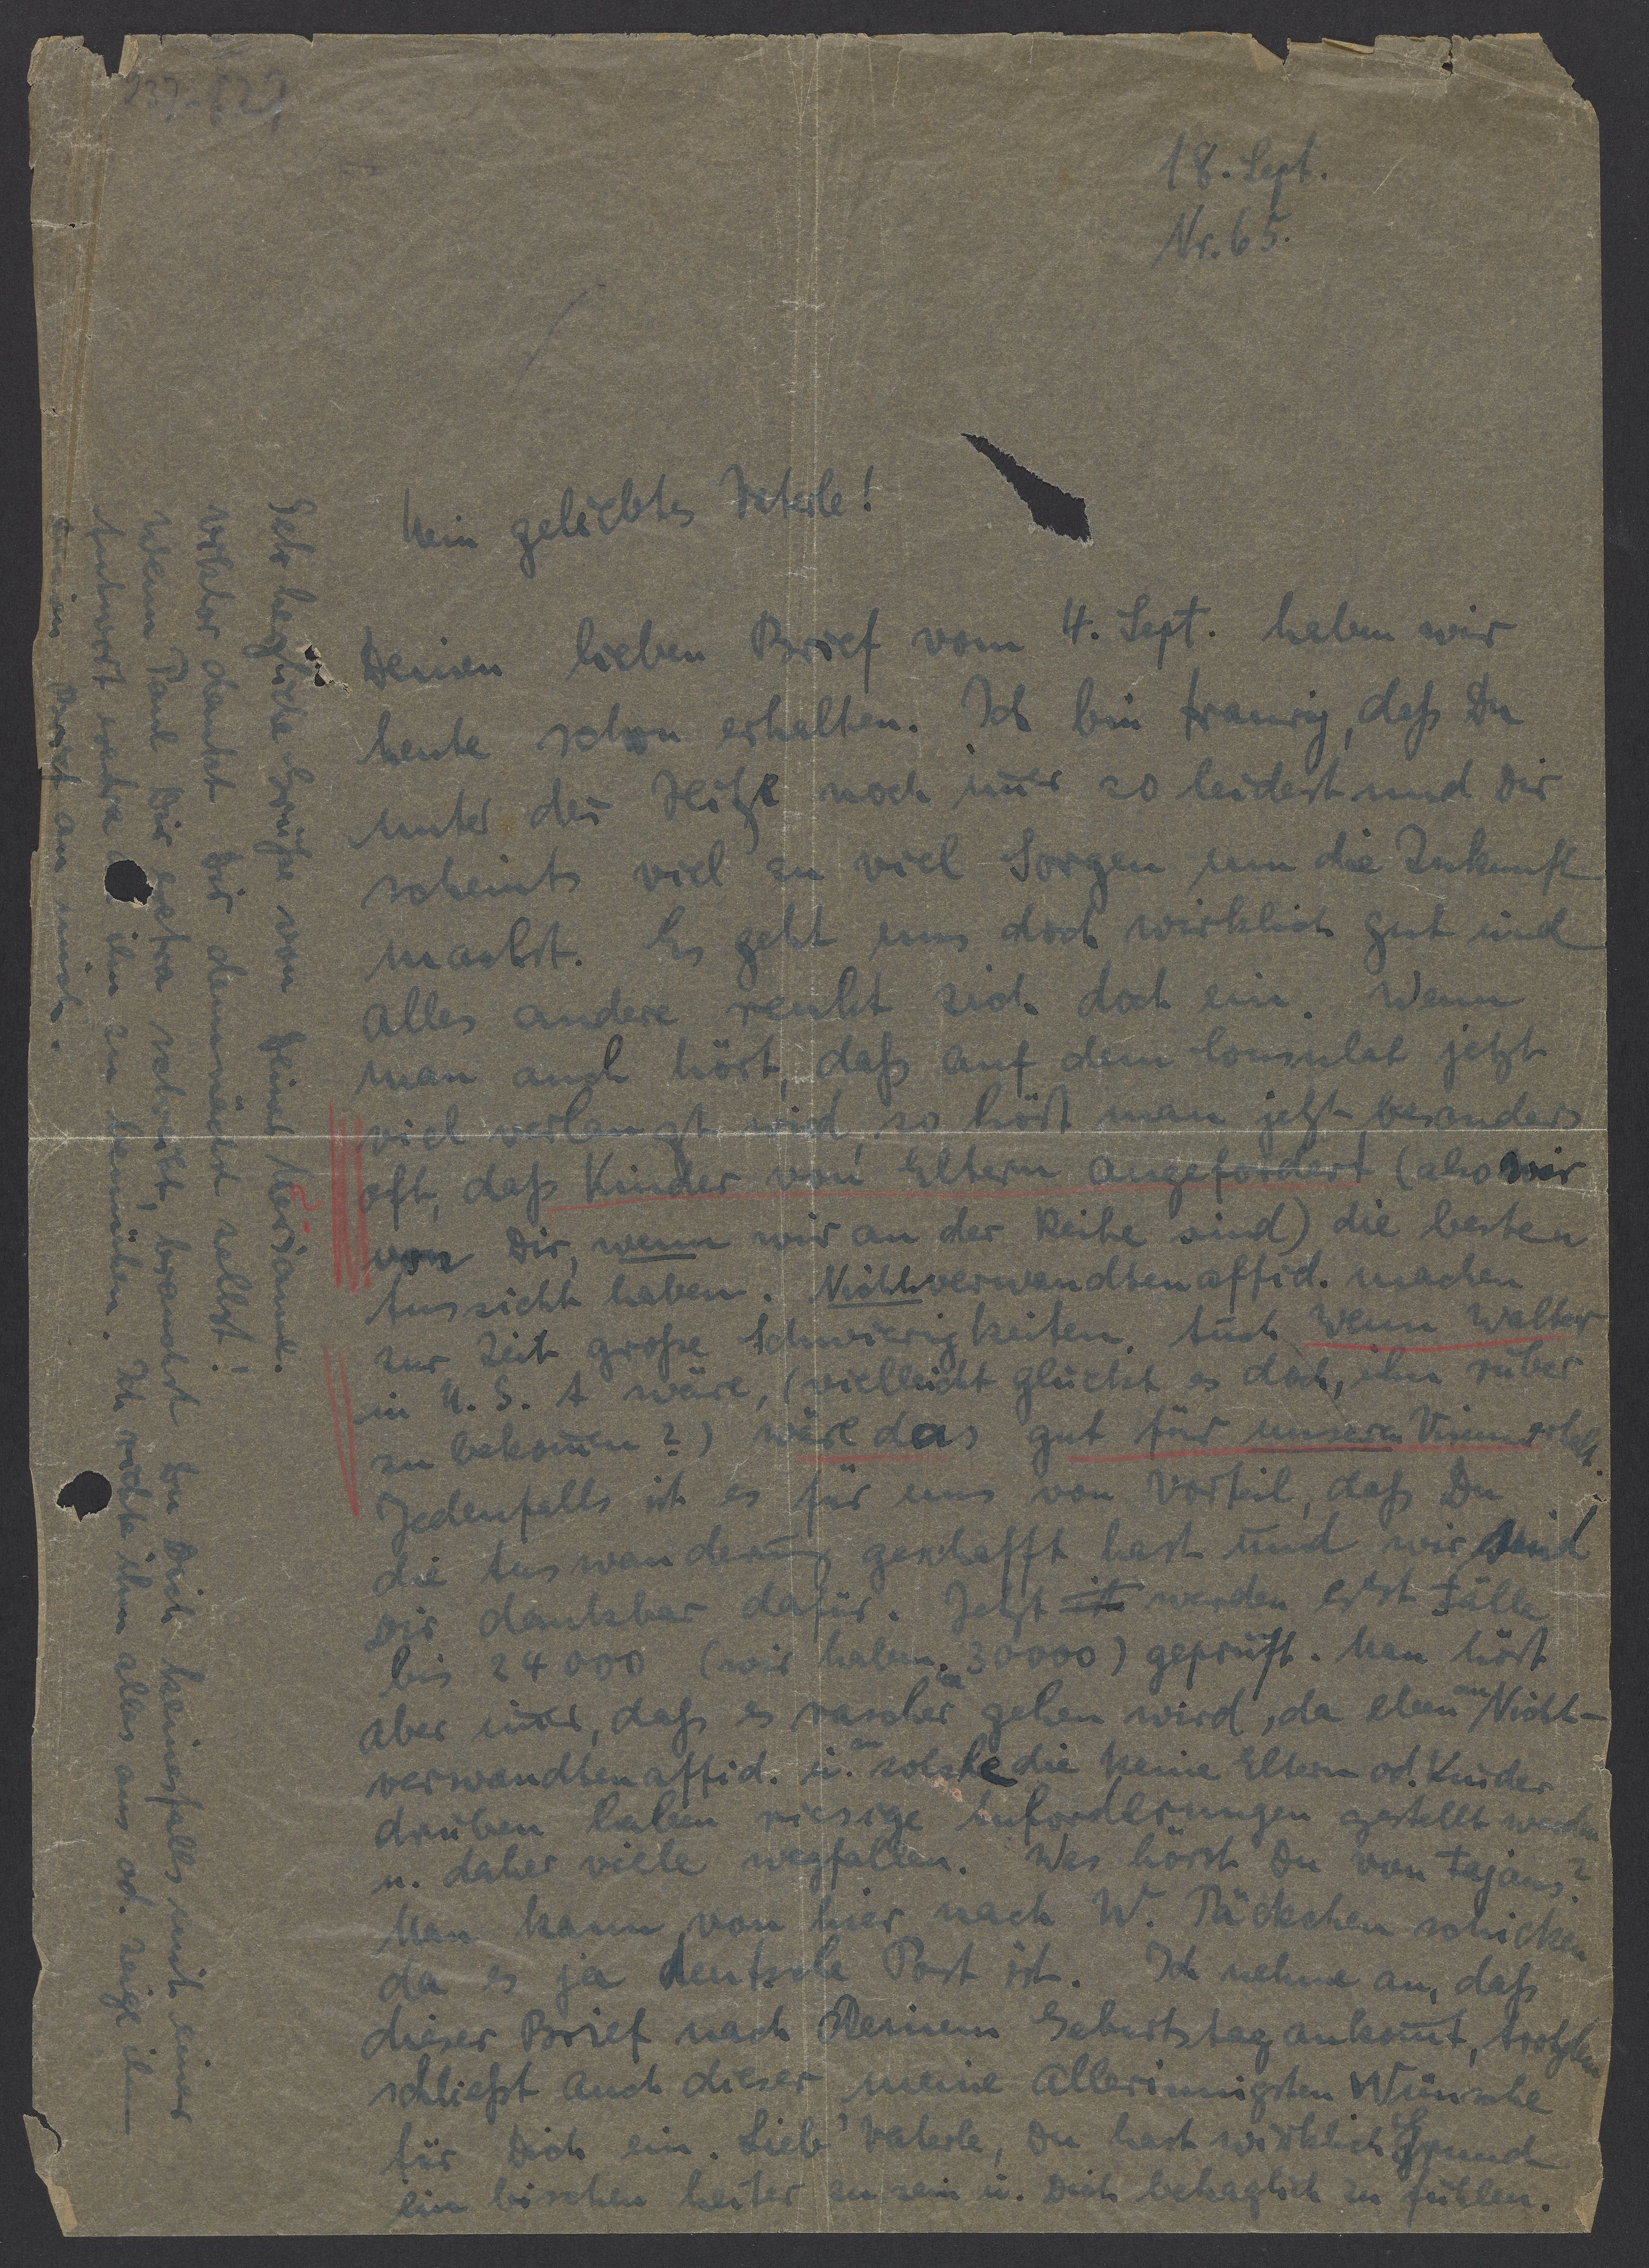 18. Sept.
Nr. 65.
Mein geliebtes Vaterle!
Deinen lieben Brief vom 4. Sept. haben wir
heute schon erhalten. Ich bin traurig, daß Du
unter der Hitze noch im̄er so leidest und Dir
scheints viel zu viel Sorgen um die Zukunft
machst. Es geht uns doch wirklich gut und
alles andere renkt sich doch ein. Wenn
man auch hört, daß auf dem Consulat jetzt
viel verlangt wird, so hört man jetzt besonders
oft, daß Kinder von Eltern angefordert (also wir
von Dir, wenn wir an der Reihe sind) die besten
Aussicht haben. Nichtverwandtenaffid. machen
zur Zeit große Schwierigkeiten. Auch wenn Walter
in U. S. A wäre, (vielleicht glückt es doch, ihn rüber
zu bekom̄en?) wäre das gut für unseren Visumerhalt.
Jedenfalls ist es für uns von Vorteil, daß Du
die Auswanderung geschafft hast und wir sind
Dir dankbar dafür. Jetzt werden erst Fälle
bis 24 000 (wir haben ca 30000) geprüft. Man hört
aber im̄er, daß es rascher gehen wird, da eben an Nicht-
verwandtenaffid. u. an solche die keine Eltern od. Kinder
drüben haben riesige Anforderungen gestellt werden
u. daher viele wegfallen. Was hörst Du von Fajans?
Man kann von hier nach W. Päckchen schicken
da es ja deutsche Post ist. Ich nehme an, daß
dieser Brief nach Deinem Geburtstag ankom̄t, trotzdem
schließt auch dieser meine allerinnigsten Wünsche
für Dich ein. Lieb' Vaterle, Du hast wirklich Grund
ein bischen heiter zu sein u. Dich behaglich zu fühlen.
Sehr herzliche Grüße von
Viktor dankt Dir demnächst selbst!
Wenn Paul Dir extra schreibt, brauchst Du Dich keinesfalls mit einer
Antwort extra ihn zu bemühen. Ich richte ihm alles aus od. zeige ihm
Brief an mich.